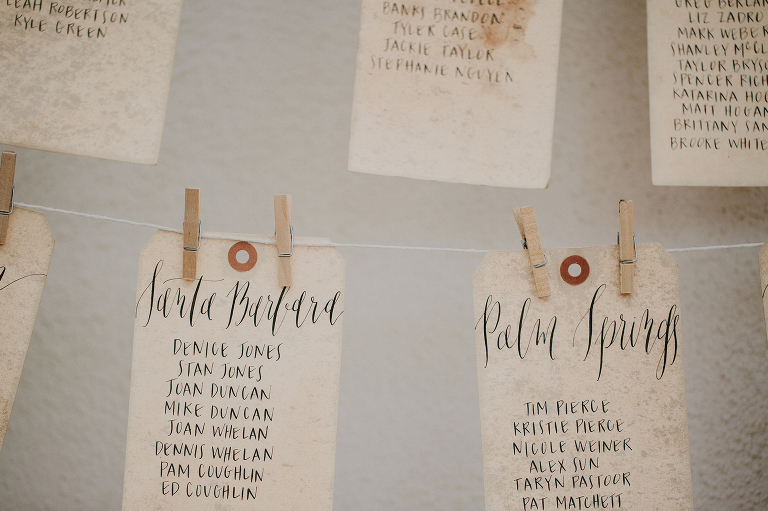 LEAH ROBERTSON
KYLE GREEN
BANKS BRANDON
TYLER CASE
JACKIE TAYLOR
STEPHANIE NGUYEN
LIZ ZADRO
MARK WEBER
SHANLEY
TAYLOR
SPENCER
KATARINA
MATT HOGAN
BRITTANY
BROOKE WHITE
Santa Barbara
DENICE JONES
STAN JONES
JOAN DUNCAN
MIKE DUNCAN
JOAN WHELAN
DENNIS WHELAN
PAM COUGHLIN
ED COUGHLIN
Palm Springs
TIM PIERCE
KRISTIE PIERCE
NICOLE WEINER
ALEX SUN
TARYN PASTOOR
PAT MATCHETT